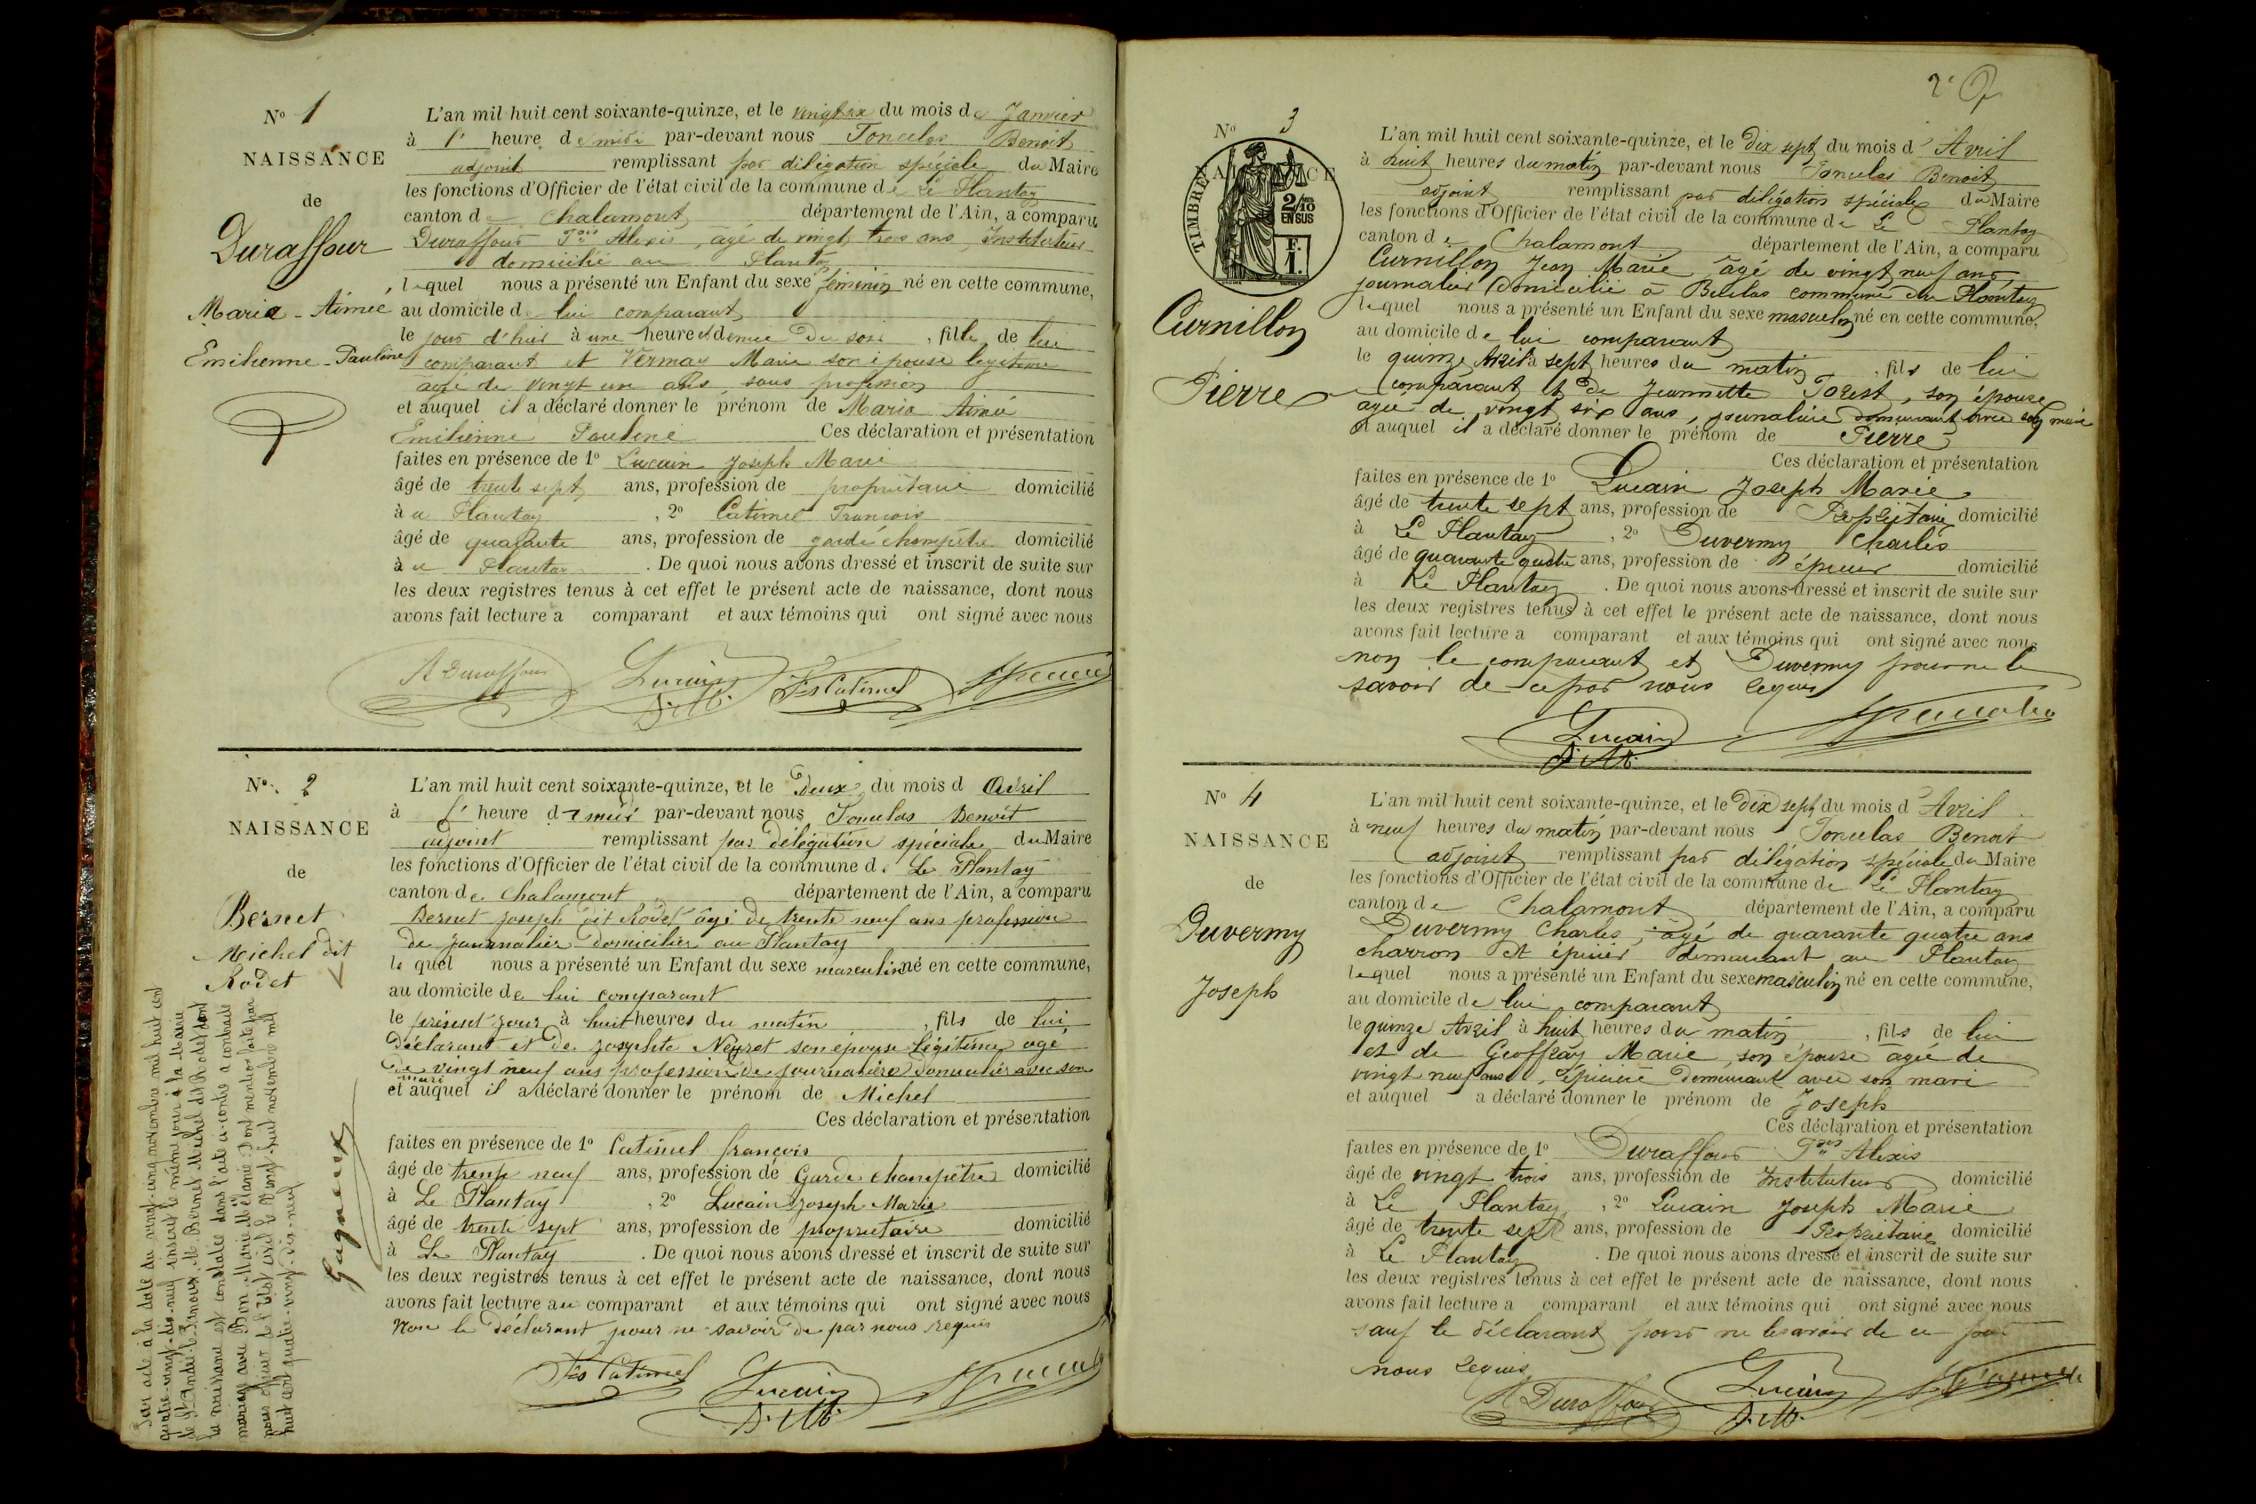 N° 1
NAISSANCE
de
Duraffour
Maria - Aimée
Emilienne - Pauline
L'an mil huit cent soixante-quinze, et le du mois de Janvier
à 1' heure de midi par-devant nous Benoit
adjoint remplissant par délégation spéciale du Maire
les fonctions d'Officier de l'état civil de la commune de Le Plantay
canton de Chalamont département de l'Ain, a comparu
Duraffour Alexis, âgé de vingt trois ans, Instituteur
domicilié au Plantay
lequel nous a présenté un Enfant du sexe féminin né en cette commune,
au domicile de lui comparant
le jour d'hui à une heure et demie du soir, fille de lui
comparant et Vernay Marie son épouse légitime
âgée de vingt un ans sans profession
et auquel il a déclaré donner le prénom de Maria Aimée
Emilienne Pauline Ces déclaration et présentation
faites en présence de 1° Lucain Joseph Marie
âgé de trente sept ans, profession de propriétaire domicilié
à u Plantay, 2° Catimel François
âgé de quarante ans, profession de garde champêtre domicilié
à u Plantay. De quoi nous avons dressé et inscrit de suite sur
les deux registres tenus à cet effet le présent acte de naissance, dont nous
avons fait lecture a comparant et aux témoins qui ont signé avec nous
A Duraffour Lucain J.M. Fs Catimel
N° 2
NAISSANCE
de
Bernet
Michel dit
Rodet
L'an mil huit cent soixante-quinze, et le Deux du mois d Avril
à 1' heure de midi par-devant nous Benoit
adjoint remplissant par délégation spéciale du Maire
les fonctions d'Officier de l'état civil de la commune de Le Plantay
canton de Chalamont département de l'Ain, a comparu
Bernet Joseph dit Rodet âgé de trente neuf ans profession
de journalier domicilier au Plantay
le quel nous a présenté un Enfant du sexe masculin né en cette commune,
au domicile de lui comparant
le présent jour à huit heures du matin, fils de lui
déclarant et de Josephte Neyret son épouse légitime agé
de vingt neuf ans profession de journalière domicilier avec son
mari
et auquel il a déclaré donner le prénom de Michel
Ces déclaration et présentation
faites en présence de 1° Catimel françois
âgé de trente neuf ans, profession de Garde champêtre domicilié
à Le Plantay, 2° Lucain Joseph Marie
âgé de trente sept ans, profession de propriétaire domicilié
à Le Plantay. De quoi nous avons dressé et inscrit de suite sur
les deux registres tenus à cet effet le présent acte de naissance, dont nous
avons fait lecture au comparant et aux témoins qui ont signé avec nous
Non le déclarant pour ne savoir de par nous requis
Fs Catimel Lucain J.M.
Par acte à la date du vingt-cinq novembre mil huit cent
quatre-vingt-dix-neuf inscrit le même jour à la Mairie
de St André le M. Bernet Michel dit Rodet dont
la naissance est constatée dans l'acte ci-contre a contracté
mariage avec Marie Mélanie Dont mention faite par
nous officier de l'état civil le vingt-huit novembre mil
huit cent quatre-vingt-dix-neuf
2e
N° 3
NAISSANCE
TIMBRE
2/10 EN SUS
F. 1.
Curnillon
Pierre
L'an mil huit cent soixante-quinze, et le Dix sept du mois d'Avril
à huit heures du matin par-devant nous Benoit
adjoint remplissant par délégation spéciale du Maire
les fonctions d'Officier de l'état civil de la commune de Le Plantay
canton de Chalamont département de l'Ain, a comparu
Curnillon Jean Marie, âgé de vingt neuf ans
journalier domicilié à commune du Plantay
lequel nous a présenté un Enfant du sexe masculin né en cette commune,
au domicile de lui comparant
le quinze Avril à sept heures du matin, fils de lui
comparant et de Jeannette, son épouse
agée de vingt six ans, journalière demeurant avec son mari
et auquel il a déclaré donner le prénom de Pierre
Ces déclaration et présentation
faites en présence de 1° Lucain Joseph Marie
âgé de trente sept ans, profession de Propriétaire domicilié
à Le Plantay, 2° Duvermy Charles
âgé de quarante quatre ans, profession de épicier domicilié
à Le Plantay. De quoi nous avons dressé et inscrit de suite sur
les deux registres tenus à cet effet le présent acte de naissance, dont nous
avons fait lecture a comparant et aux témoins qui ont signé avec nous
non le comparant et Duvermy pour ne le
savoir de ce par nous requis
Lucain J.M.
N° 4
NAISSANCE
de
Duvermy
Joseph
L'an mil huit cent soixante-quinze, et le Dix sept du mois d'Avril
à neuf heures du matin par-devant nous Benoit
adjoint remplissant par délégation spéciale du Maire
les fonctions d'Officier de l'état civil de la commune de Le Plantay
canton de Chalamont département de l'Ain, a comparu
Duvermy Charles, âgé de quarante quatre ans
charron et épicier demeurant au Plantay
lequel nous a présenté un Enfant du sexe masculin né en cette commune,
au domicile de lui comparant
le quinze Avril à huit heures du matin, fils de lui
et de Geoffray Marie, son épouse âgée de
vingt neuf ans, épicière demeurant avec son mari
et auquel a déclaré donner le prénom de Joseph
Ces déclaration et présentation
faites en présence de 1° Duraffour Alexis
âgé de vingt trois ans, profession de Instituteur domicilié
à Le Plantay, 2° Lucain Joseph Marie
âgé de trente sept ans, profession de Propriétaire domicilié
à Le Plantay. De quoi nous avons dressé et inscrit de suite sur
les deux registres tenus à cet effet le présent acte de naissance, dont nous
avons fait lecture a comparant et aux témoins qui ont signé avec nous
sauf le déclarant pour ne le savoir de ce par
nous requis
A Duraffour Lucain J.M.